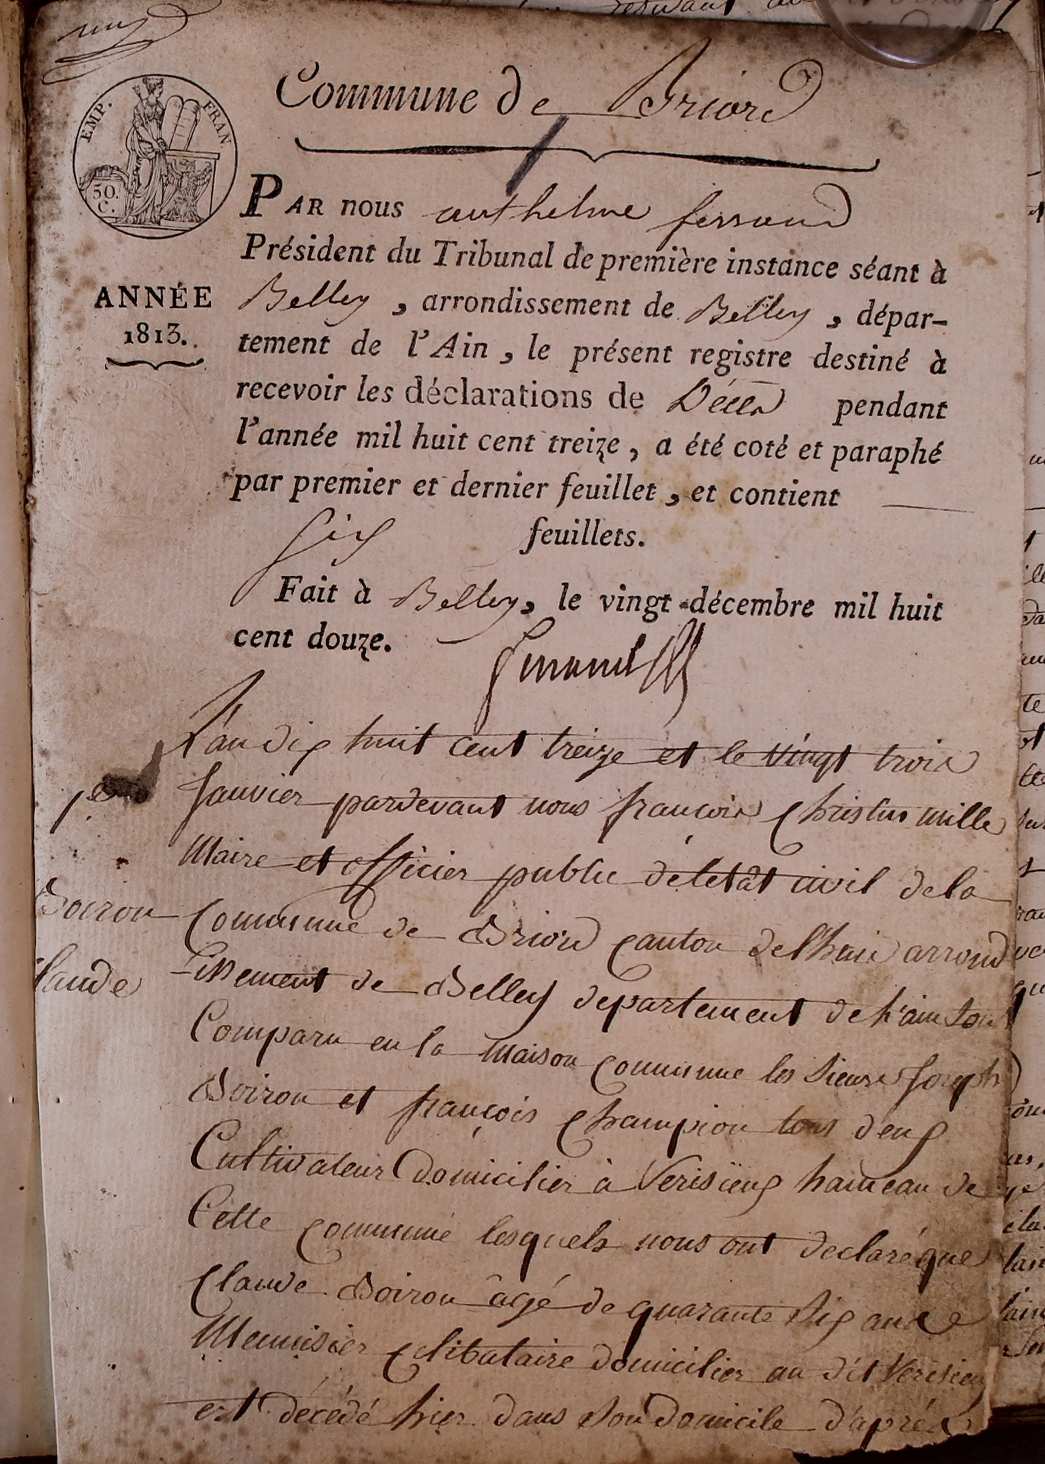 Commune de Briord
EMP. FRAN
50.
C.
PAR nous anthelme ferrand
Président du Tribunal de première instance séant à
ANNÉE
1813.
Belley, arrondissement de Belley, dépar-
tement de l'Ain, le présent registre destiné à
recevoir les déclarations de Décès pendant
l'année mil huit cent treize, a été coté et paraphé
par premier et dernier feuillet, et contient
six feuillets.
Fait à Belley, le vingt décembre mil huit
cent douze.
L'an dix huit cent treize et le vingt trois
1er
Janvier pardevant nous françois
Maire et officier public de letât civil de la
Boiron
Claude
Commune de Briord canton de lhuis arrond
issement de Belley departement de l'ain sont
Comparu en la maison commune les sieurs Joseph
Boiron et françois Champion tous deux
Cultivateur Domicilier à Verisieux hameau de
Cette commune lesquels nous ont declaré que
Claude Boiron âgé de quarante six ans
Menuisier Celibataire domicilier au dit Verisieu
est décédé hier dans son Domicile d'après